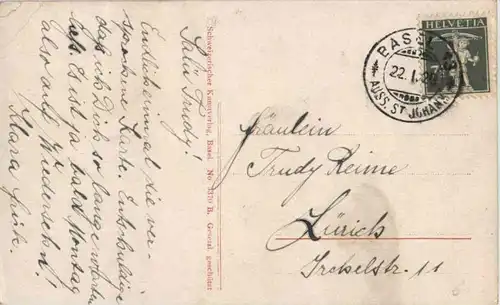 Salü Trudy!
Endlich einmal die ver-
sprochene Karte. Entschuldige
dass ich Dich so lange warten
liess. Es ist ja bald Montag
also auf Wiedersehn!
Klara
Schweizerischer Kunstverlag, Basel. No. 3370 B. Gesetzl. geschützt
HELVETIA
BASEL
22.I.
AUSS. ST JOHANN
Fräulein
Trudy Reime
Zürich
Irchelstr. 11